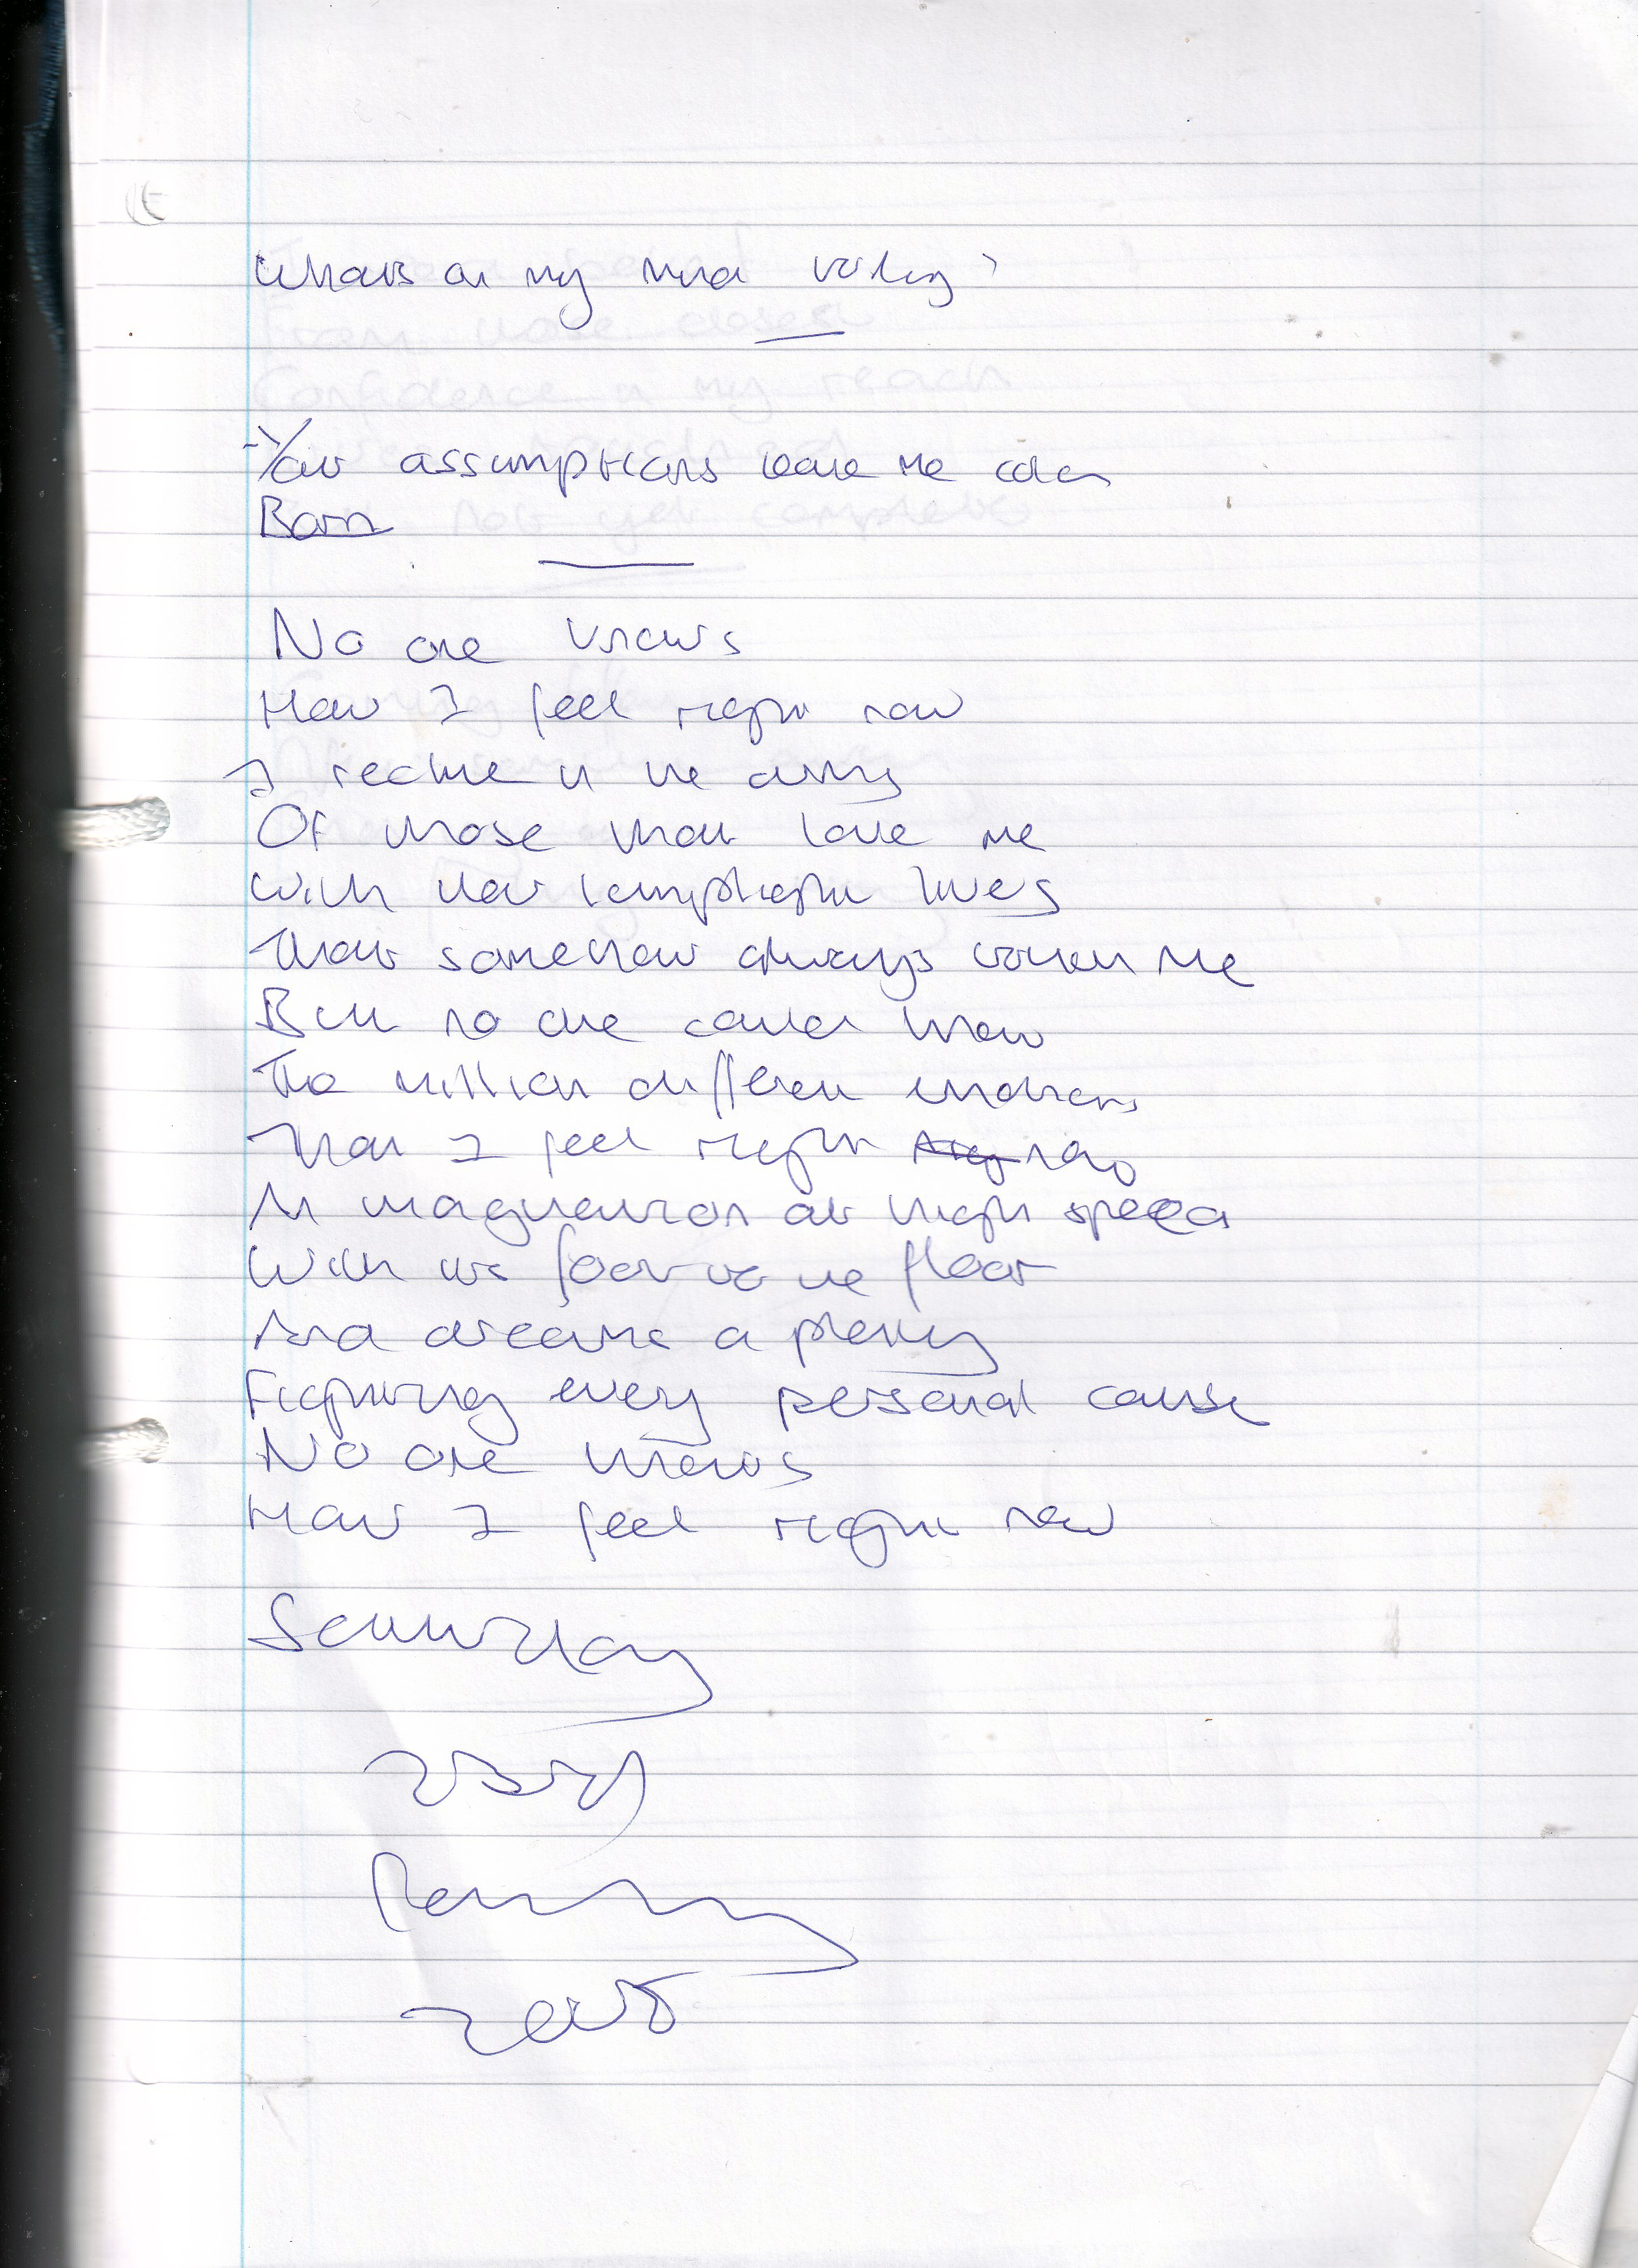 Whats on my mind today?
Your assumptions leave me cold
Born
No one knows
How I feel right now
I recline in the arms
Of those that love me
With their lives
That somehow always me
But no one could know
The million different emotions
That I feel right now
An imagination at high speed
With its foot to the floor
And dreams a plenty
Fighting every personal cause
No one knows
How I feel right now
Saturday